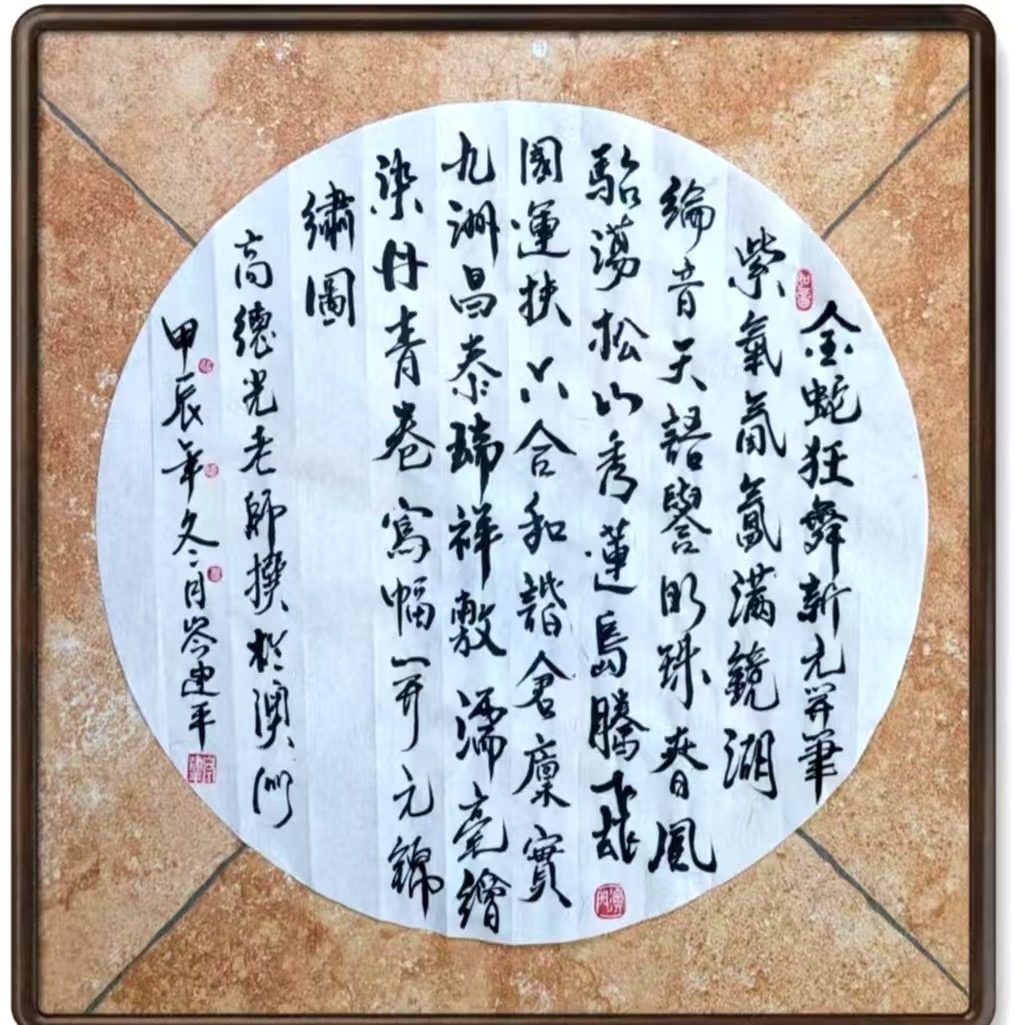 金蛇狂舞新元開筆
紫氣氤氳滿鏡湖
綸音天語譽明珠春風
駘蕩松山秀蓮島騰飛
國運扶六合和諧倉廩實
九洲昌泰瑞祥敷濡毫繪
染丹青卷寫幅開元錦
繡圖
高德光老師撰於澳門
甲辰年冬月岑建平